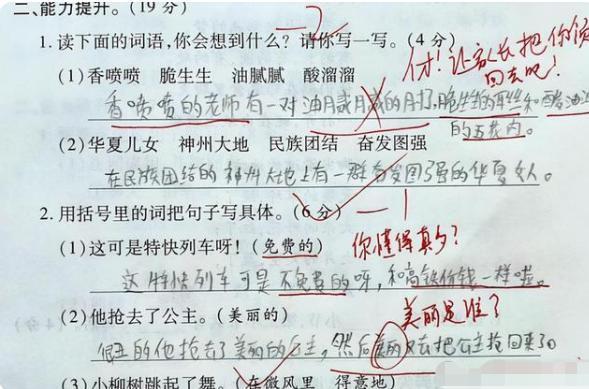 二、能力提升。(19 分)
1.读下面的词语,你会想到什么?请你写一写。(4 分)
(1)香喷喷 脆生生 油腻腻 酸溜溜
付!让家长把你领回去吧!
香喷喷的老师有一对油腻腻的
的五花肉。
(2)华夏儿女 神州大地 民族团结 奋发图强
在民族团结的神州大地上有一群奋发图强的华夏女人。
2.用括号里的词把句子写具体。(6 分) —1
(1)这可是特快列车呀!(免费的)
你懂得真多?
这特快列车可是不免费的呀,和高铁价钱一样哒。
(2)他抢去了公主。(美丽的)
美丽是谁?
他抢去了美丽的公主,然后美丽又去把公主抢回来了。
(3)小柳树跳起了舞。(在微风里 得意地)